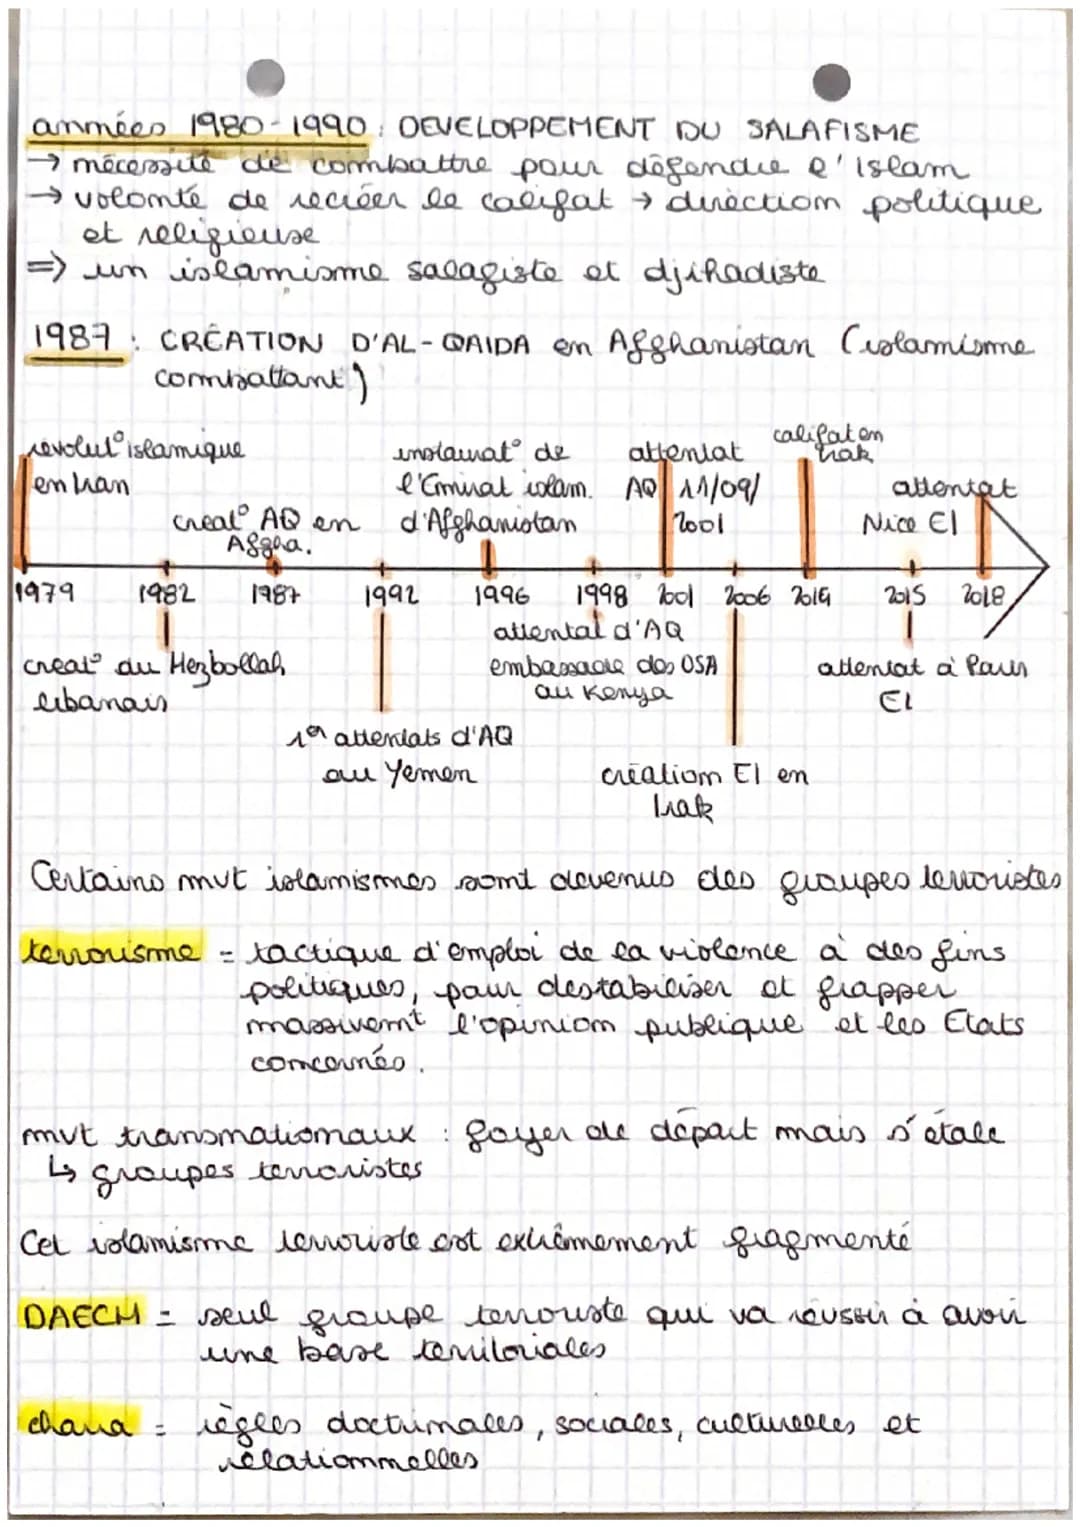 années 1980-1990 : DEVELOPPEMENT DU SALAFISME
→ nécessité de combattre pour défendre l'islam
→ volonté de recréer le califat → direction politique
et religieuse
=> un islamisme salafiste et djihadiste
1987 : CRÉATION D'AL-QAIDA en Afghanistan (islamisme
combattant)
révolut° islamique
en Iran
instaurat° de
l'Emirat islam.
d'Afghanistan
attentat
AQ 11/09/
2001
califat en
Irak
attentat
Nice EI
creat° AQ en
Afgha.
1979 1982 1987 1992 1996 1998 2001 2006 2014 2015 2018
creat° du Hezbollah
libanais
attentat d'AQ
embassade des USA
au Kenya
attentat à Paris
EI
1er attentats d'AQ
au Yemen
création EI en
Irak
Certains mvt islamismes sont devenus des groupes terroristes
terrorisme = tactique d'emploi de la violence à des fins
politiques, pour destabiliser et frapper
massivemt l'opinion publique et les Etats
concernés.
mvt transnationaux : foyer de départ mais s'étale
↳ groupes terroristes
Cet islamisme terroriste est extrêmement fragmenté
DAECH = seul groupe terroriste qui va réussir à avoir
une base territoriales
charia = règles doctrinales, sociales, culturelles et
relationnelles